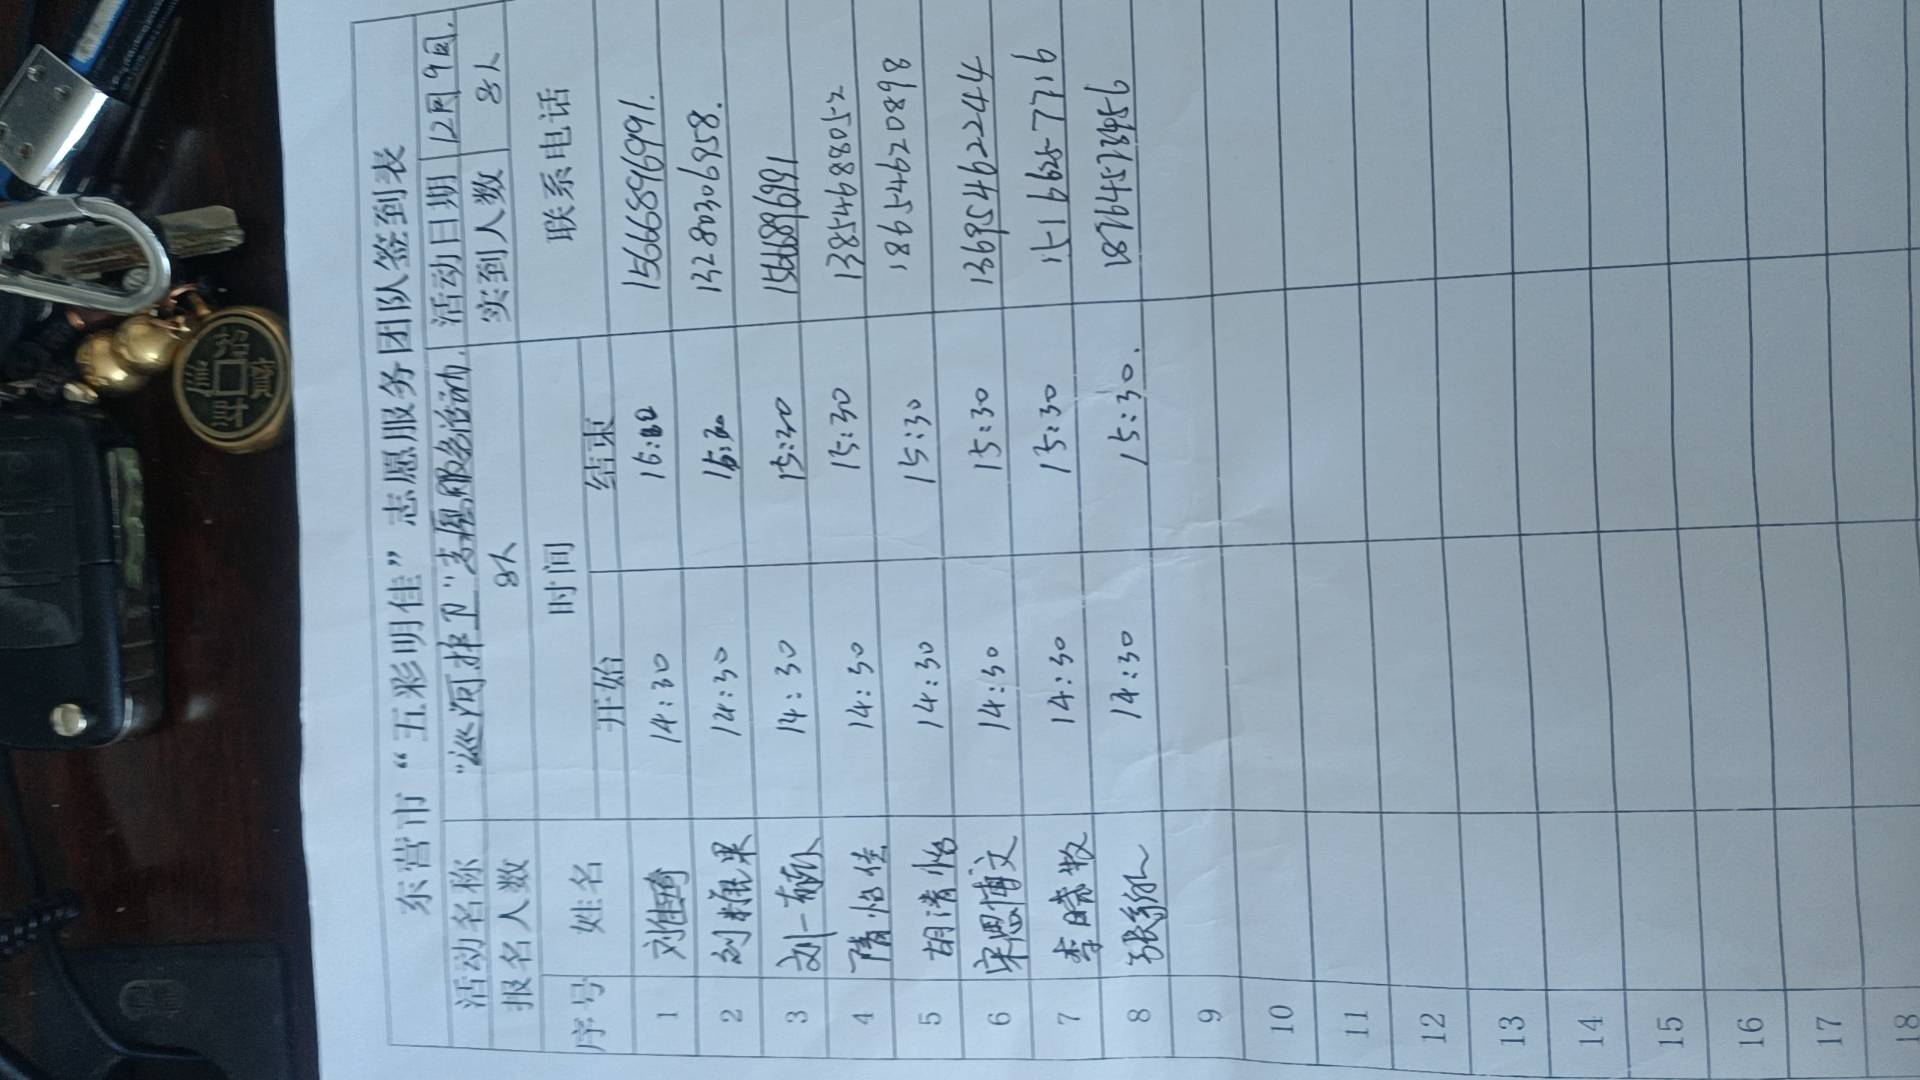 东营市“五彩明佳”志愿服务团队签到表
活动名称 “巡河护卫”志愿服务活动. 活动日期 12月9日.
报名人数 8人 实到人数 8人
序号 姓名 时间 联系电话
开始 结束
1 刘佳琦 14:30 15668969991.
2 14:30 13280306958.
3 刘一 14:30 15:20 15668969991
4 隋怡佳 14:30 15:30 13854688052
5 胡清怡 14:30 15:30 18654620898
6 宋恩博文 14:30 15:30 13695462244
7 李晓牧 14:30 15:30 15166257716
8 张 14:30 15:30.
9
10
11
12
13
14
15
16
17
18
招财